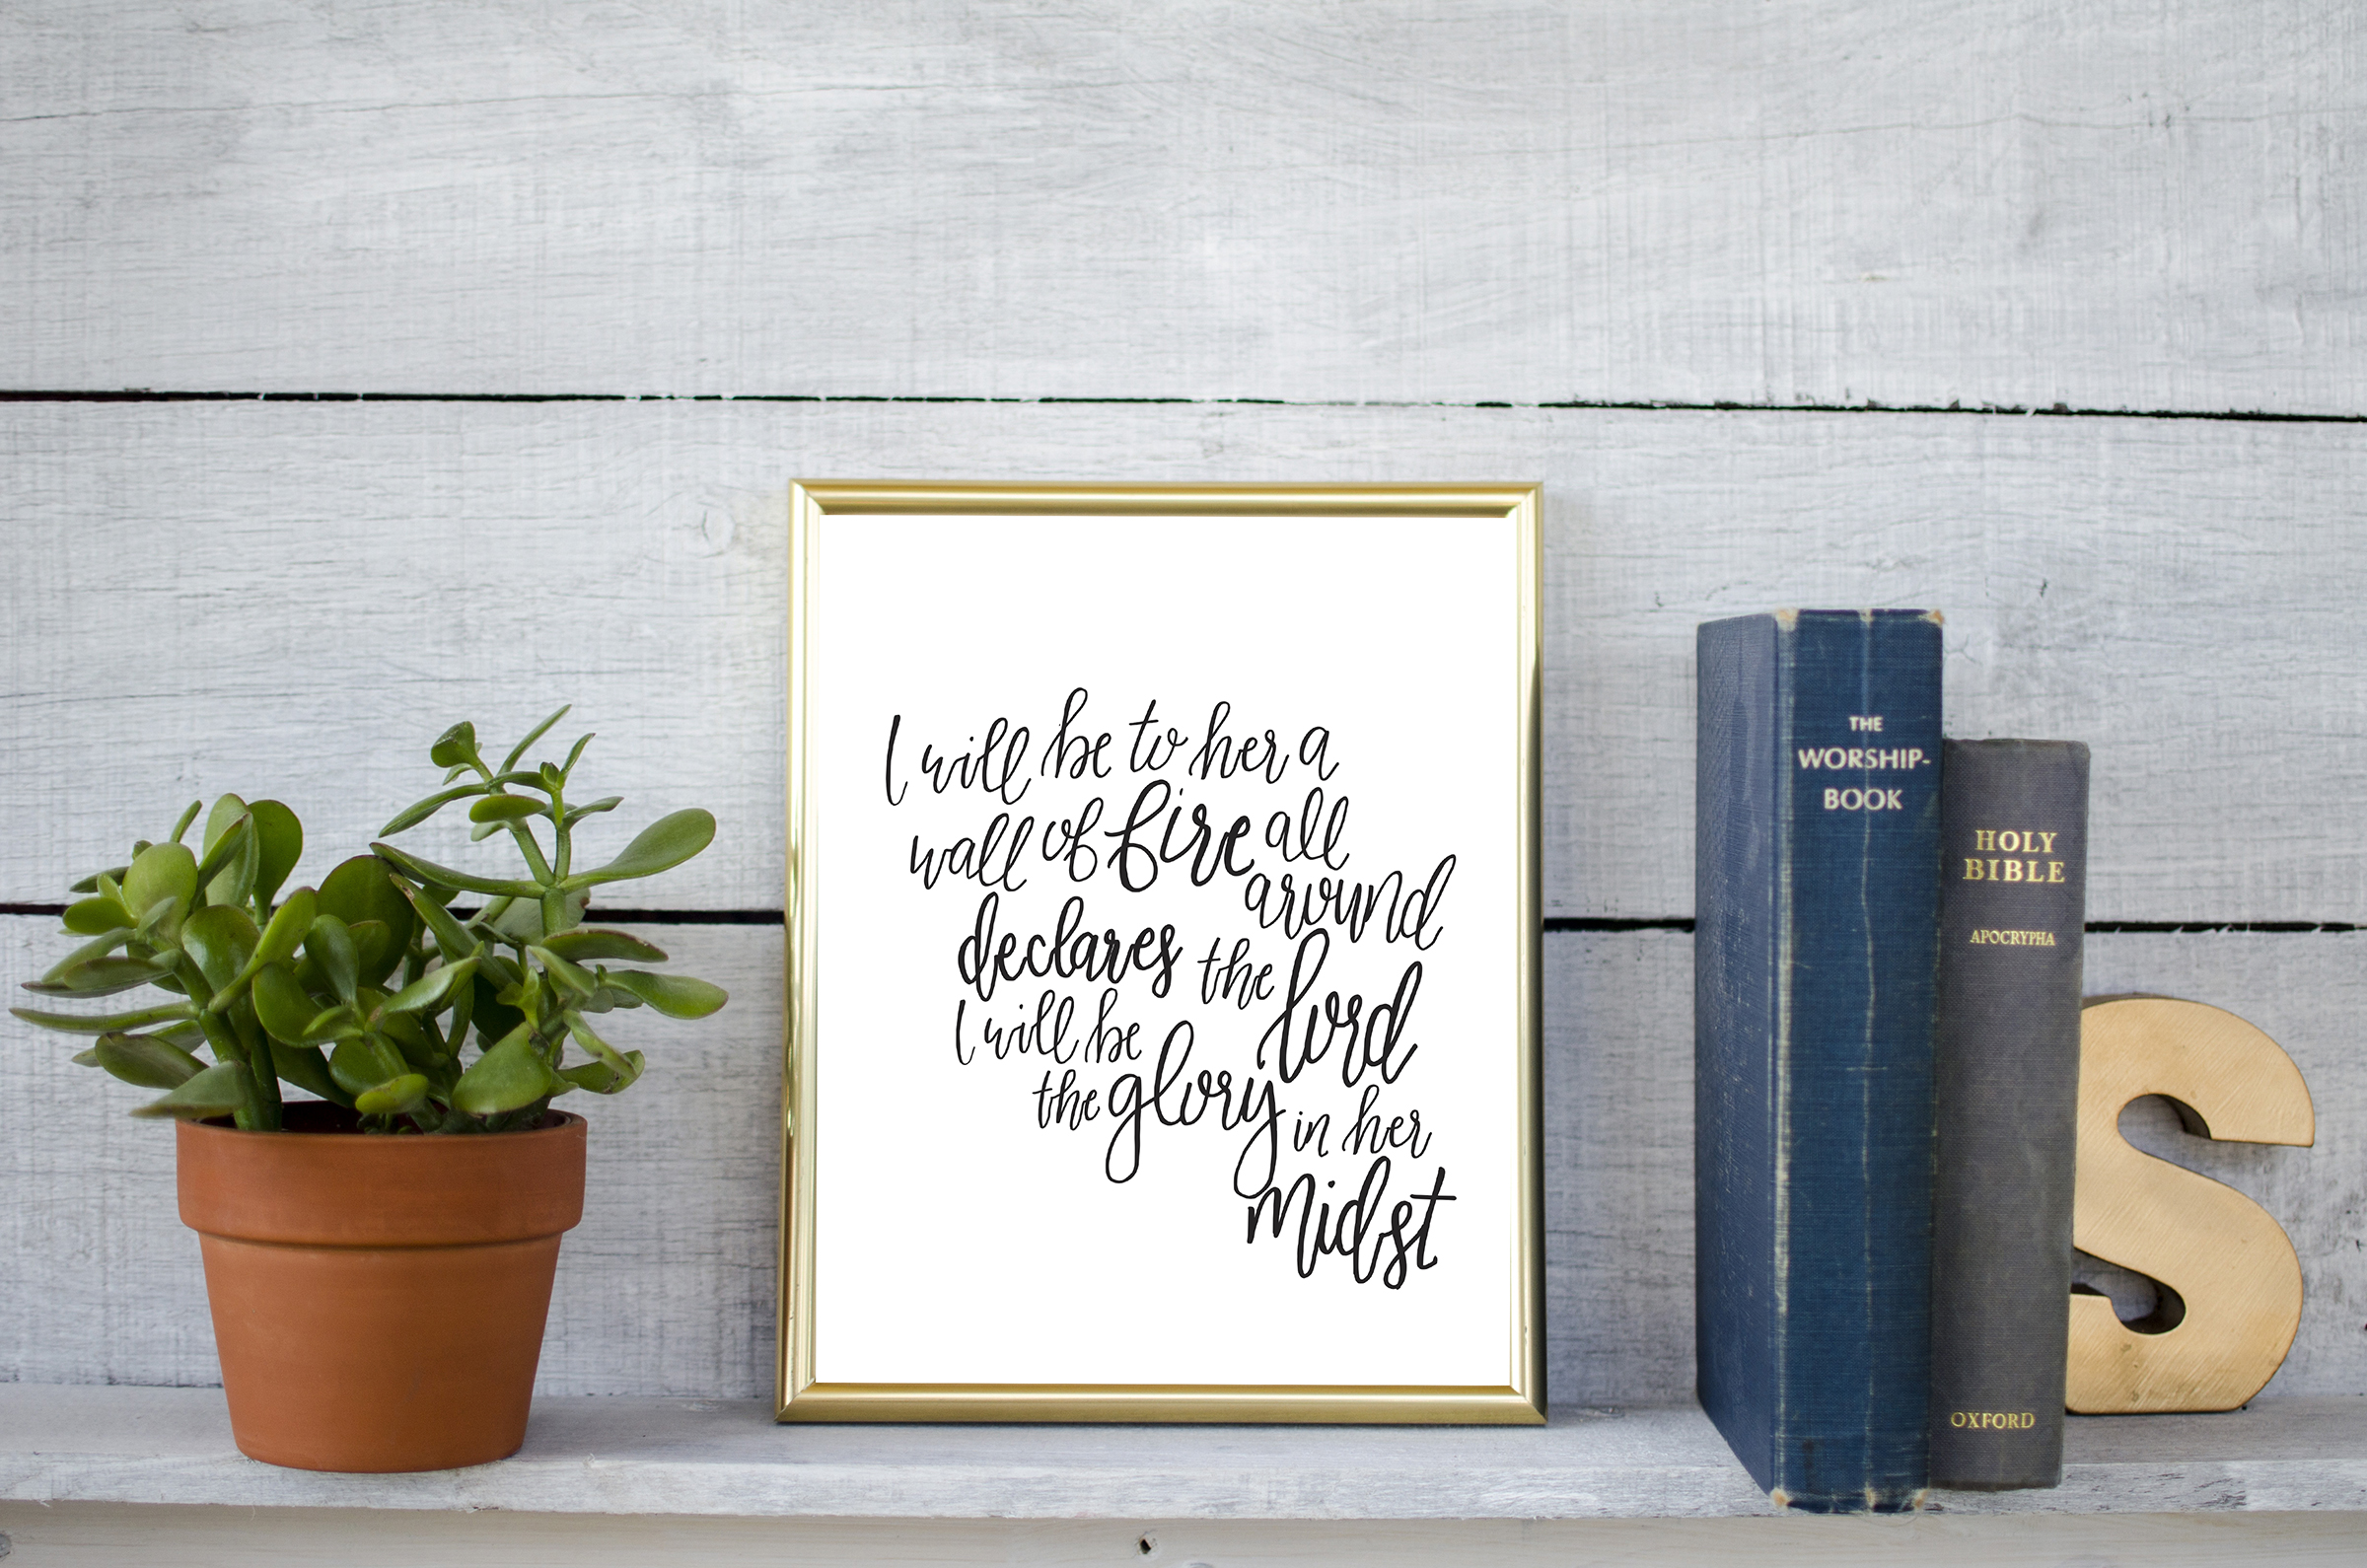 I will be to her a
wall of fire all
around
declares the lord
I will be
the glory in her
midst
THE
WORSHIP-
BOOK
HOLY
BIBLE
APOCRYPHA
OXFORD
S